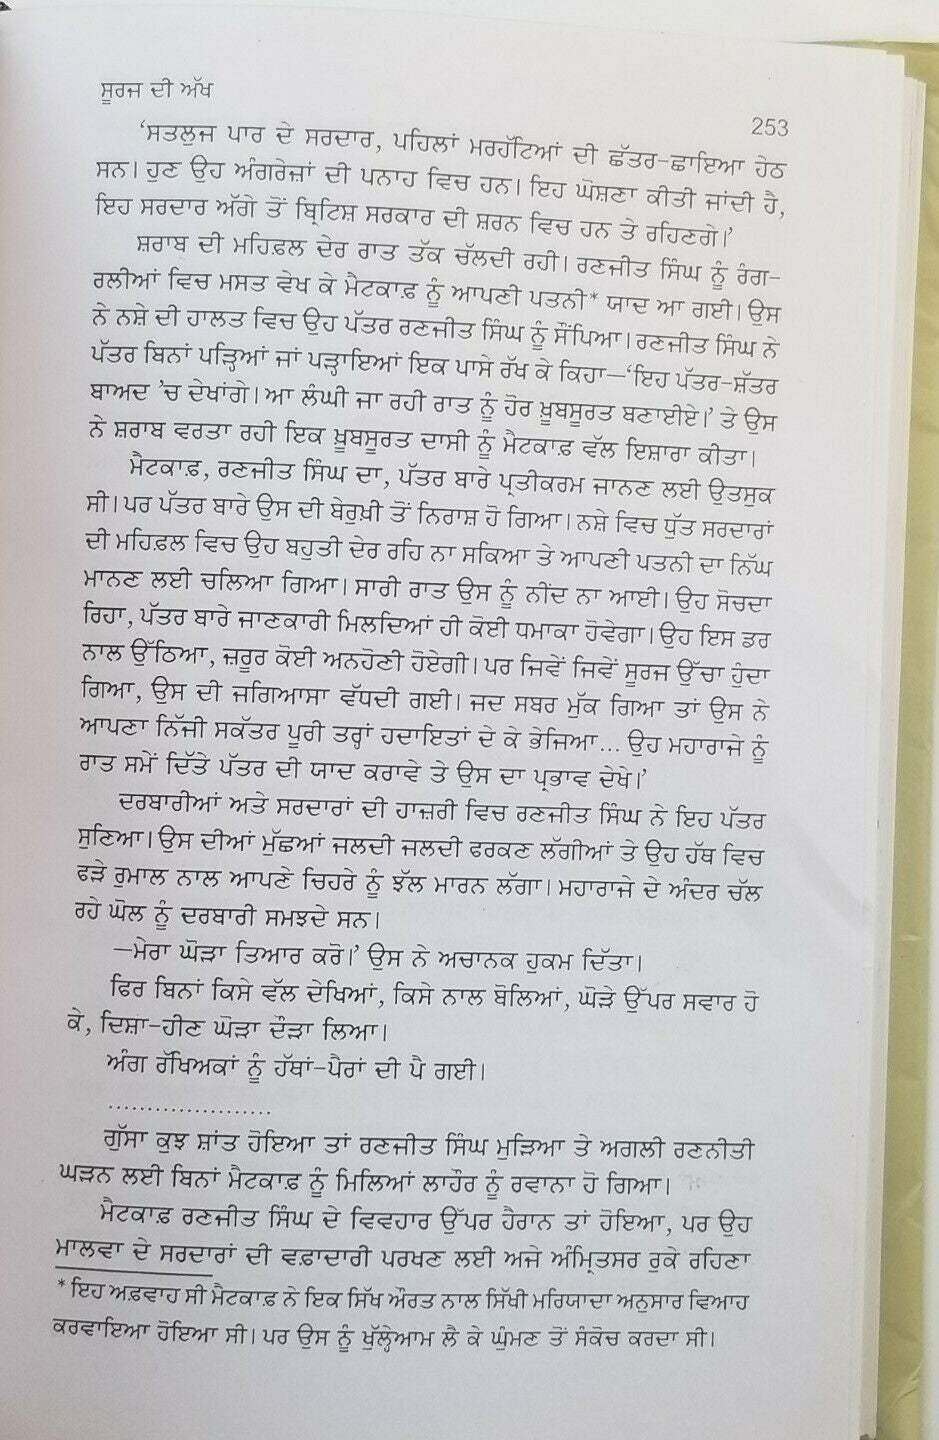 ਸੂਰਜ ਦੀ ਅੱਖ
253
‘ਸਤਲੁਜ ਪਾਰ ਦੇ ਸਰਦਾਰ, ਪਹਿਲਾਂ ਮਰਹੱਟਿਆਂ ਦੀ ਛੱਤਰ-ਛਾਇਆ ਹੇਠ
ਸਨ। ਹੁਣ ਉਹ ਅੰਗਰੇਜ਼ਾਂ ਦੀ ਪਨਾਹ ਵਿਚ ਹਨ। ਇਹ ਘੋਸ਼ਣਾ ਕੀਤੀ ਜਾਂਦੀ ਹੈ,
ਇਹ ਸਰਦਾਰ ਅੱਗੇ ਤੋਂ ਬ੍ਰਿਟਿਸ਼ ਸਰਕਾਰ ਦੀ ਸ਼ਰਨ ਵਿਚ ਹਨ ਤੇ ਰਹਿਣਗੇ।’
ਸ਼ਰਾਬ ਦੀ ਮਹਿਫ਼ਲ ਦੇਰ ਰਾਤ ਤੱਕ ਚੱਲਦੀ ਰਹੀ। ਰਣਜੀਤ ਸਿੰਘ ਨੂੰ ਰੰਗ-
ਰਲੀਆਂ ਵਿਚ ਮਸਤ ਵੇਖ ਕੇ ਮੈਟਕਾਫ਼ ਨੂੰ ਆਪਣੀ ਪਤਨੀ* ਯਾਦ ਆ ਗਈ। ਉਸ
ਨੇ ਨਸ਼ੇ ਦੀ ਹਾਲਤ ਵਿਚ ਉਹ ਪੱਤਰ ਰਣਜੀਤ ਸਿੰਘ ਨੂੰ ਸੌਂਪਿਆ। ਰਣਜੀਤ ਸਿੰਘ ਨੇ
ਪੱਤਰ ਬਿਨਾਂ ਪੜ੍ਹਿਆਂ ਜਾਂ ਪੜ੍ਹਾਇਆਂ ਇਕ ਪਾਸੇ ਰੱਖ ਕੇ ਕਿਹਾ—‘ਇਹ ਪੱਤਰ-ਸ਼ੱਤਰ
ਬਾਅਦ ’ਚ ਦੇਖਾਂਗੇ। ਆ ਲੰਘੀ ਜਾ ਰਹੀ ਰਾਤ ਨੂੰ ਹੋਰ ਖ਼ੂਬਸੂਰਤ ਬਣਾਈਏ।’ ਤੇ ਉਸ
ਨੇ ਸ਼ਰਾਬ ਵਰਤਾ ਰਹੀ ਇਕ ਖ਼ੂਬਸੂਰਤ ਦਾਸੀ ਨੂੰ ਮੈਟਕਾਫ਼ ਵੱਲ ਇਸ਼ਾਰਾ ਕੀਤਾ।
ਮੈਟਕਾਫ਼, ਰਣਜੀਤ ਸਿੰਘ ਦਾ, ਪੱਤਰ ਬਾਰੇ ਪ੍ਰਤੀਕਰਮ ਜਾਨਣ ਲਈ ਉਤਸੁਕ
ਸੀ। ਪਰ ਪੱਤਰ ਬਾਰੇ ਉਸ ਦੀ ਬੇਰੁਖ਼ੀ ਤੋਂ ਨਿਰਾਸ਼ ਹੋ ਗਿਆ। ਨਸ਼ੇ ਵਿਚ ਧੁੱਤ ਸਰਦਾਰਾਂ
ਦੀ ਮਹਿਫ਼ਲ ਵਿਚ ਉਹ ਬਹੁਤੀ ਦੇਰ ਰਹਿ ਨਾ ਸਕਿਆ ਤੇ ਆਪਣੀ ਪਤਨੀ ਦਾ ਨਿੱਘ
ਮਾਨਣ ਲਈ ਚਲਿਆ ਗਿਆ। ਸਾਰੀ ਰਾਤ ਉਸ ਨੂੰ ਨੀਂਦ ਨਾ ਆਈ। ਉਹ ਸੋਚਦਾ
ਰਿਹਾ, ਪੱਤਰ ਬਾਰੇ ਜਾਣਕਾਰੀ ਮਿਲਦਿਆਂ ਹੀ ਕੋਈ ਧਮਾਕਾ ਹੋਵੇਗਾ। ਉਹ ਇਸ ਡਰ
ਨਾਲ ਉੱਠਿਆ, ਜ਼ਰੂਰ ਕੋਈ ਅਨਹੋਣੀ ਹੋਏਗੀ। ਪਰ ਜਿਵੇਂ ਜਿਵੇਂ ਸੂਰਜ ਉੱਚਾ ਹੁੰਦਾ
ਗਿਆ, ਉਸ ਦੀ ਜਗਿਆਸਾ ਵੱਧਦੀ ਗਈ। ਜਦ ਸਬਰ ਮੁੱਕ ਗਿਆ ਤਾਂ ਉਸ ਨੇ
ਆਪਣਾ ਨਿੱਜੀ ਸਕੱਤਰ ਪੂਰੀ ਤਰ੍ਹਾਂ ਹਦਾਇਤਾਂ ਦੇ ਕੇ ਭੇਜਿਆ... ਉਹ ਮਹਾਰਾਜੇ ਨੂੰ
ਰਾਤ ਸਮੇਂ ਦਿੱਤੇ ਪੱਤਰ ਦੀ ਯਾਦ ਕਰਾਵੇ ਤੇ ਉਸ ਦਾ ਪ੍ਰਭਾਵ ਦੇਖੇ।’
ਦਰਬਾਰੀਆਂ ਅਤੇ ਸਰਦਾਰਾਂ ਦੀ ਹਾਜ਼ਰੀ ਵਿਚ ਰਣਜੀਤ ਸਿੰਘ ਨੇ ਇਹ ਪੱਤਰ
ਸੁਣਿਆ। ਉਸ ਦੀਆਂ ਮੁੱਛਆਂ ਜਲਦੀ ਜਲਦੀ ਫਰਕਣ ਲੱਗੀਆਂ ਤੇ ਉਹ ਹੱਥ ਵਿਚ
ਫੜੇ ਰੁਮਾਲ ਨਾਲ ਆਪਣੇ ਚਿਹਰੇ ਨੂੰ ਝੱਲ ਮਾਰਨ ਲੱਗਾ। ਮਹਾਰਾਜੇ ਦੇ ਅੰਦਰ ਚੱਲ
ਰਹੇ ਘੋਲ ਨੂੰ ਦਰਬਾਰੀ ਸਮਝਦੇ ਸਨ।
—ਮੇਰਾ ਘੋੜਾ ਤਿਆਰ ਕਰੋ।’ ਉਸ ਨੇ ਅਚਾਨਕ ਹੁਕਮ ਦਿੱਤਾ।
ਫਿਰ ਬਿਨਾਂ ਕਿਸੇ ਵੱਲ ਦੇਖਿਆਂ, ਕਿਸੇ ਨਾਲ ਬੋਲਿਆਂ, ਘੋੜੇ ਉੱਪਰ ਸਵਾਰ ਹੋ
ਕੇ, ਦਿਸ਼ਾ-ਹੀਣ ਘੋੜਾ ਦੌੜਾ ਲਿਆ।
ਅੰਗ ਰੱਖਿਅਕਾਂ ਨੂੰ ਹੱਥਾਂ-ਪੈਰਾਂ ਦੀ ਪੈ ਗਈ।
.....................
ਗੁੱਸਾ ਕੁਝ ਸ਼ਾਂਤ ਹੋਇਆ ਤਾਂ ਰਣਜੀਤ ਸਿੰਘ ਮੁੜਿਆ ਤੇ ਅਗਲੀ ਰਣਨੀਤੀ
ਘੜਨ ਲਈ ਬਿਨਾਂ ਮੈਟਕਾਫ਼ ਨੂੰ ਮਿਲਿਆਂ ਲਾਹੌਰ ਨੂੰ ਰਵਾਨਾ ਹੋ ਗਿਆ।
ਮੈਟਕਾਫ਼ ਰਣਜੀਤ ਸਿੰਘ ਦੇ ਵਿਵਹਾਰ ਉੱਪਰ ਹੈਰਾਨ ਤਾਂ ਹੋਇਆ, ਪਰ ਉਹ
ਮਾਲਵਾ ਦੇ ਸਰਦਾਰਾਂ ਦੀ ਵਫ਼ਾਦਾਰੀ ਪਰਖਣ ਲਈ ਅਜੇ ਅੰਮ੍ਰਿਤਸਰ ਰੁਕੇ ਰਹਿਣਾ
* ਇਹ ਅਫ਼ਵਾਹ ਸੀ ਮੈਟਕਾਫ਼ ਨੇ ਇਕ ਸਿੱਖ ਔਰਤ ਨਾਲ ਸਿੱਖੀ ਮਰਿਯਾਦਾ ਅਨੁਸਾਰ ਵਿਆਹ
ਕਰਵਾਇਆ ਹੋਇਆ ਸੀ। ਪਰ ਉਸ ਨੂੰ ਖੁੱਲ੍ਹੇਆਮ ਲੈ ਕੇ ਘੁੰਮਣ ਤੋਂ ਸੰਕੋਚ ਕਰਦਾ ਸੀ।